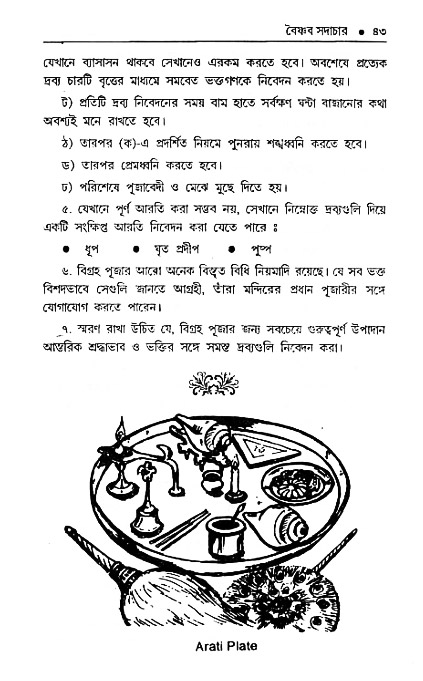 বৈষ্ণব সদাচার ● ৪৩
যেখানে ব্যাসাসন থাকবে সেখানেও এরকম করতে হবে। অবশেষে প্রত্যেক
দ্রব্য চারটি বৃত্তের মাধ্যমে সমবেত ভক্তগণকে নিবেদন করতে হয়।
ট) প্রতিটি দ্রব্য নিবেদনের সময় বাম হাতে সর্বক্ষণ ঘন্টা বাজানোর কথা
অবশ্যই মনে রাখতে হবে।
ঠ) তারপর (ক)-এ প্রদর্শিত নিয়মে পুনরায় শঙ্খধ্বনি করতে হবে।
ড) তারপর প্রেমধ্বনি করতে হবে।
ঢ) পরিশেষে পূজাবেদী ও মেঝে মুছে দিতে হয়।
৫. যেখানে পূর্ণ আরতি করা সম্ভব নয়, সেখানে নিম্নোক্ত দ্রব্যগুলি দিয়ে
একটি সংক্ষিপ্ত আরতি নিবেদন করা যেতে পারে ঃ
● ধূপ ● ঘৃত প্রদীপ ● পুষ্প
৬. বিগ্রহ পূজার আরো অনেক বিস্তৃত বিধি নিয়মাদি রয়েছে। যে সব ভক্ত
বিশদভাবে সেগুলি জানতে আগ্রহী, তাঁরা মন্দিরের প্রধান পূজারীর সঙ্গে
যোগাযোগ করতে পারেন।
৭. স্মরণ রাখা উচিত যে, বিগ্রহ পূজার জন্য সবচেয়ে গুরুত্বপূর্ণ উপাদান
আন্তরিক শ্রদ্ধাভাব ও ভক্তির সঙ্গে সমস্ত দ্রব্যগুলি নিবেদন করা।
Arati Plate